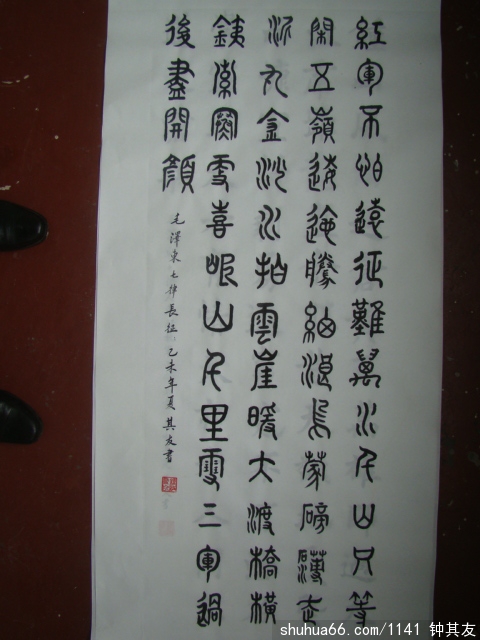 紅軍不怕遠征難萬水千山只等
閑五嶺逶迤騰細浪烏蒙磅礴走
泥丸金沙水拍雲崖暖大渡橋橫
銕索寒更喜岷山千里雪三軍過
後盡開顏
毛澤東七律長征 乙未年夏其友書
shuhua66.com/1141 钟其友